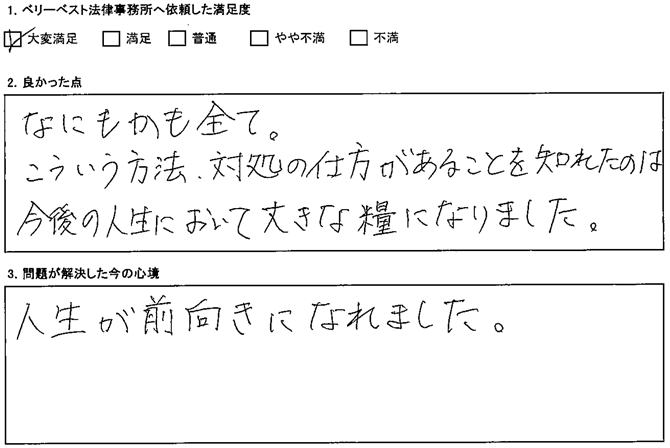 1. ベリーベスト法律事務所へ依頼した満足度
大変満足 満足 普通 やや不満 不満
2. 良かった点
なにもかも全て。
こういう方法、対処の仕方があることを知れたのは
今後の人生において大きな糧になりました。
3. 問題が解決した今の心境
人生が前向きになれました。